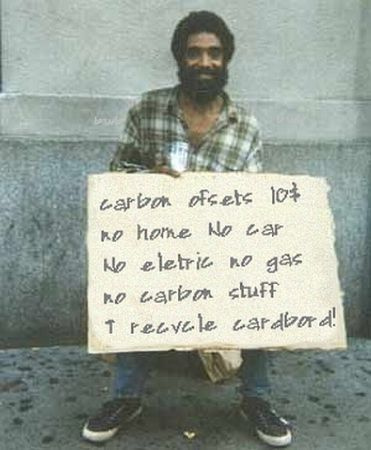 carbon ofsets 10$
no home No car
No eletric no gas
no carbon stuff
I recycle cardbord!